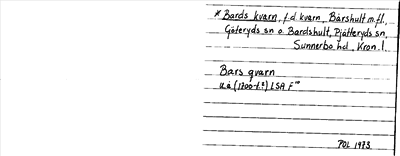 * Bards kvarn, f.d. kvarn, Bårshult m.fl.,
Göteryds sn o. Bardshult, Pjätteryds sn,
Sunnerbo hd, Kron. l.
Bars qvarn
u.å (1700-t.?) LSA F
POL 1973